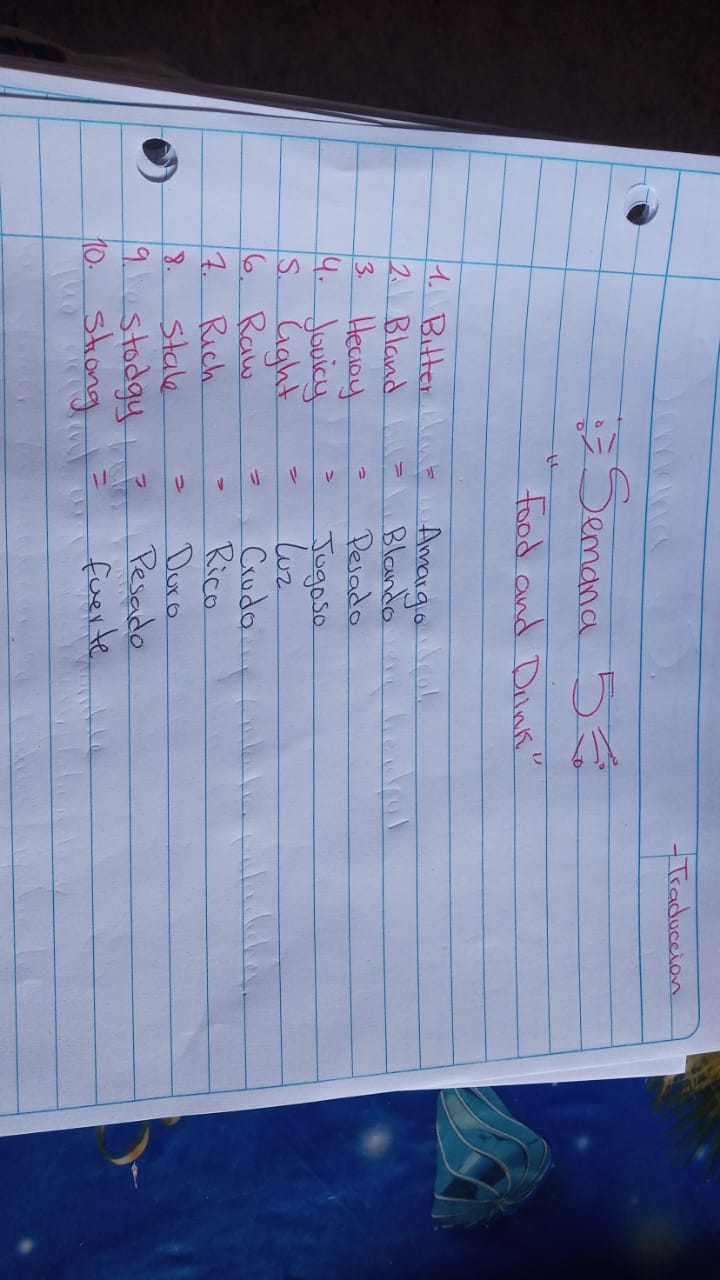 -Traduccion
Semana 5
"Food and Drink"
1. Bitter = Amargo
2. Bland = Blando
3. Heavy = Pesado
4. Jouicy = Jugoso
5. Light = Luz
6. Raw = Crudo
7. Rich = Rico
8. Stale = Duro
9. Stodgy = Pesado
10. Strong = fuerte